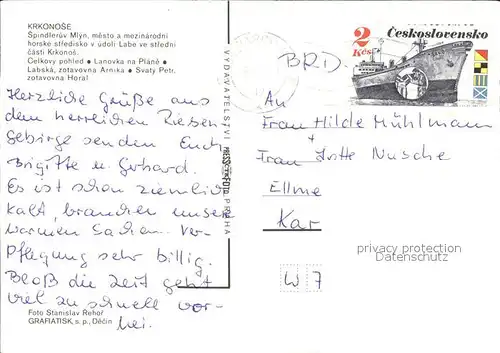 KRKONOŠE
Špindlerův Mlýn, město a mezinárodní
horské středisko v údolí Labe ve střední
části Krkonoš.
Celkový pohled ● Lanovka na Pláně ●
Labská, zotavovna Arnika ● Svatý Petr,
zotavovna Horal
Herzliche Grüße aus
dem herrlichen Riesen-
gebirge senden Euch
Brigitte u. Gerhard.
Es ist schon ziemlich
kalt, brauchen unsere
warmen Sachen. Ver-
pflegung sehr billig.
Bloß die Zeit geht
viel zu schnell vor-
bei.
Foto Stanislav Řehoř
GRAFIATISK, s. p., Děčín
VYDAVATELSTVÍ PRESSFOTO PRAHA
2 Kčs
Československo
BRD.
An
Frau Hilde Mühlmann
+
Frau Lotte Nusche
Ellme
Kar
W 7
privacy protection
Datenschutz